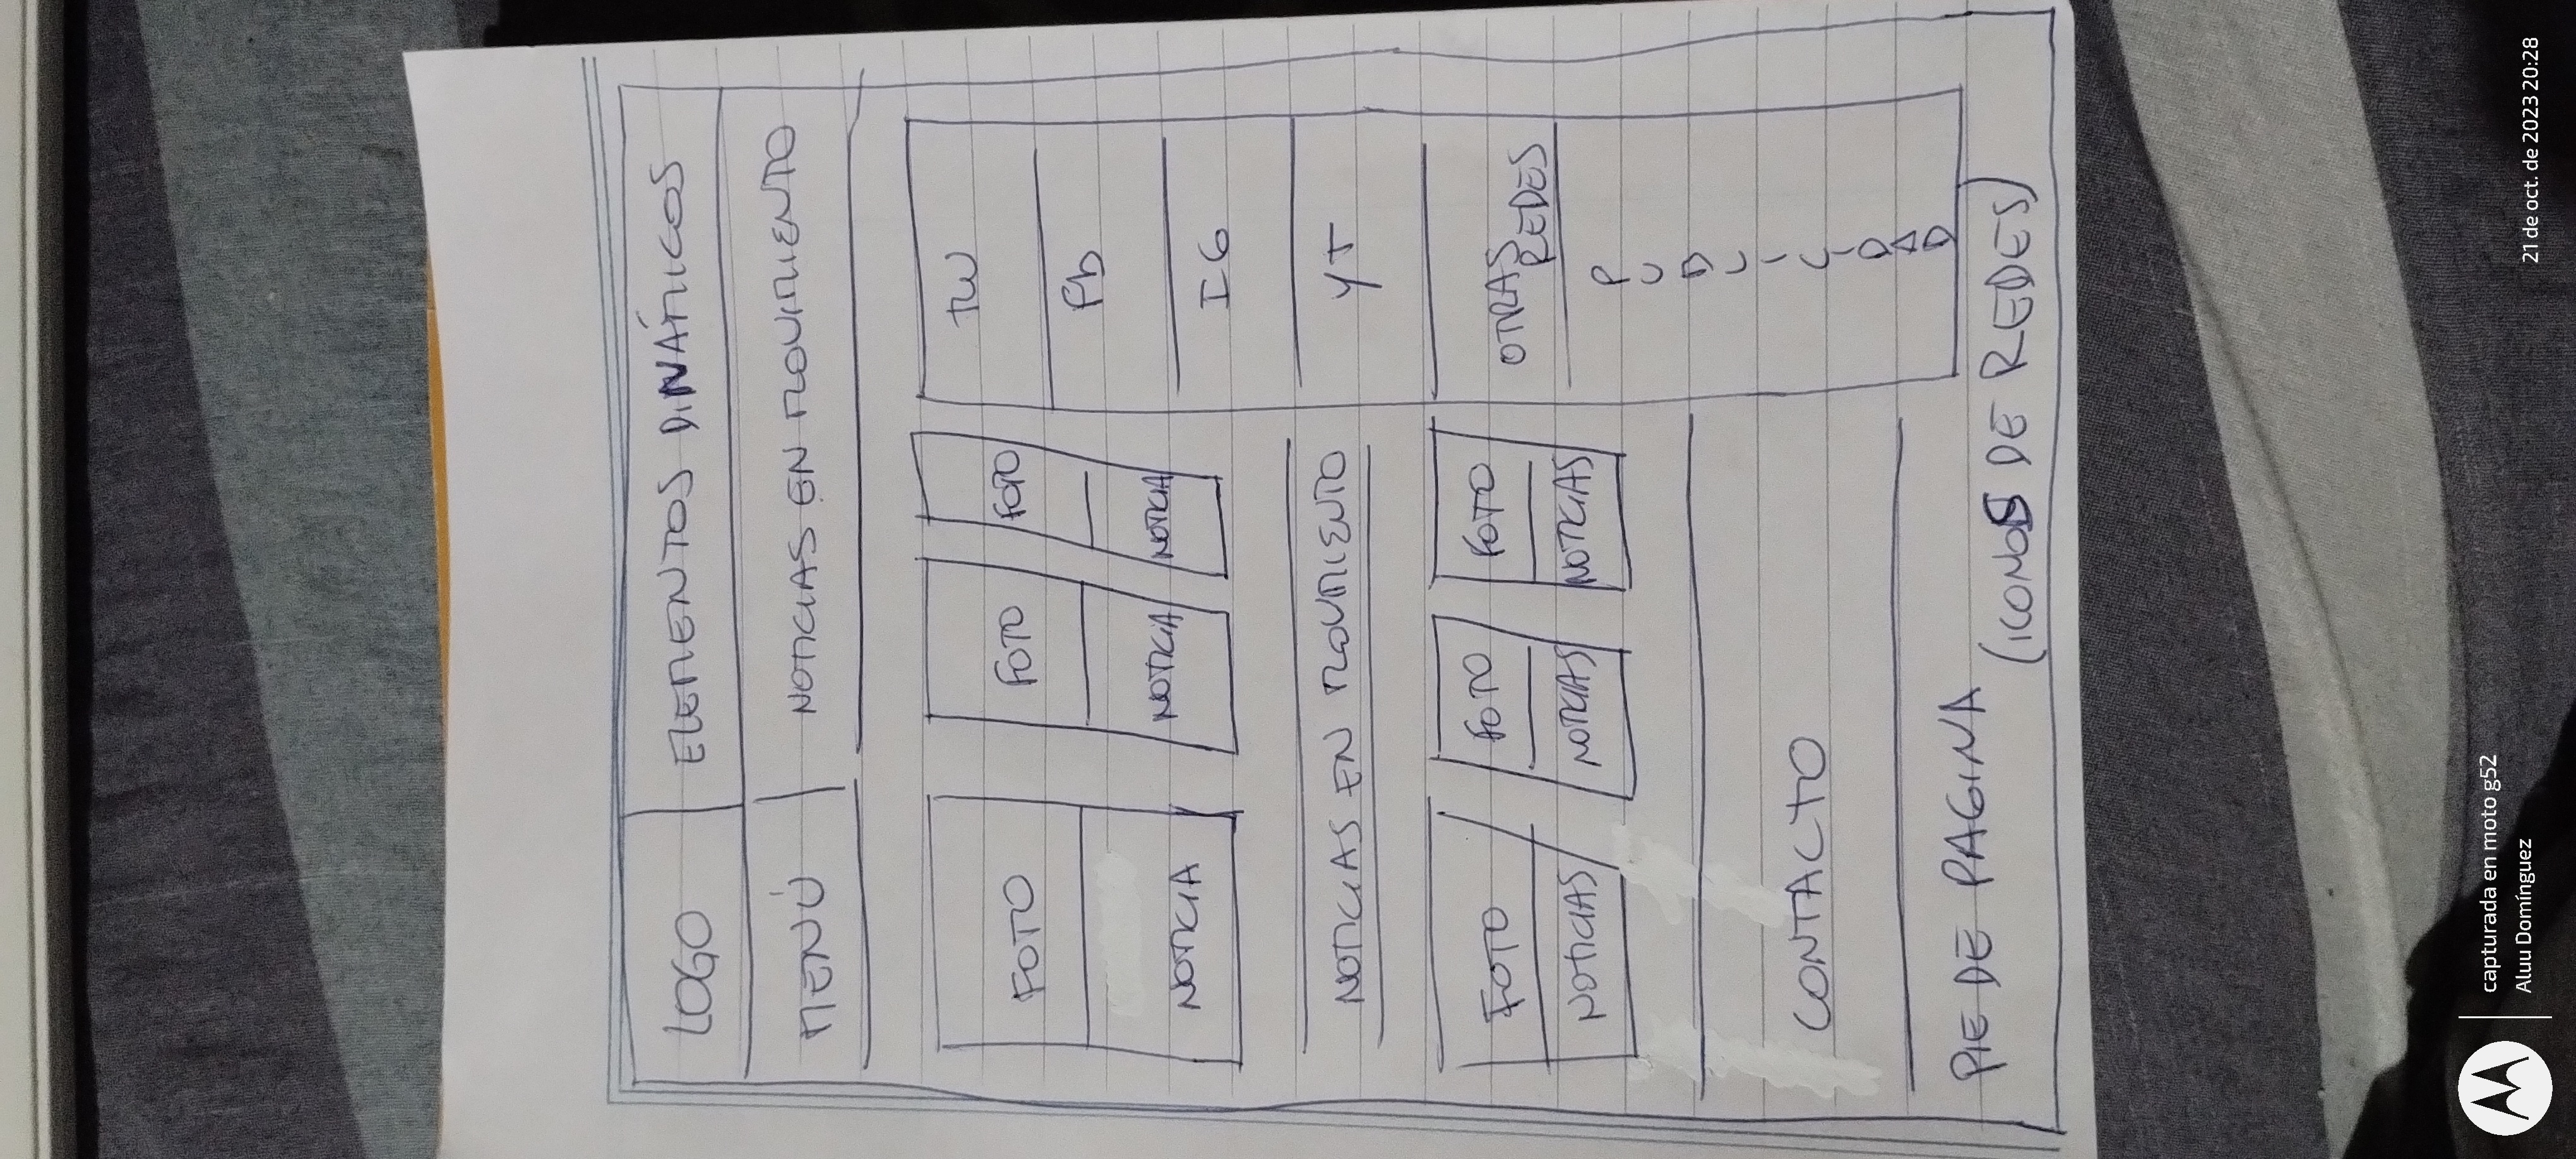 LOGO
ELEMENTOS DINÁMICOS
MENÚ
NOTICIAS EN MOVIMIENTO
FOTO
NOTICIA
FOTO
NOTICIA
FOTO
NOTICIA
NOTICIAS EN MOVIMIENTO
FOTO
NOTICIAS
FOTO
NOTICIAS
FOTO
NOTICIAS
CONTACTO
tW
Fb
IG
YT
OTRAS
REDES
P
U
B
L
I
C
I
D
A
D
PIE DE PAGINA
(ICONOS DE REDES)
capturada en moto g52
Aluu Domínguez
21 de oct. de 2023 20:28